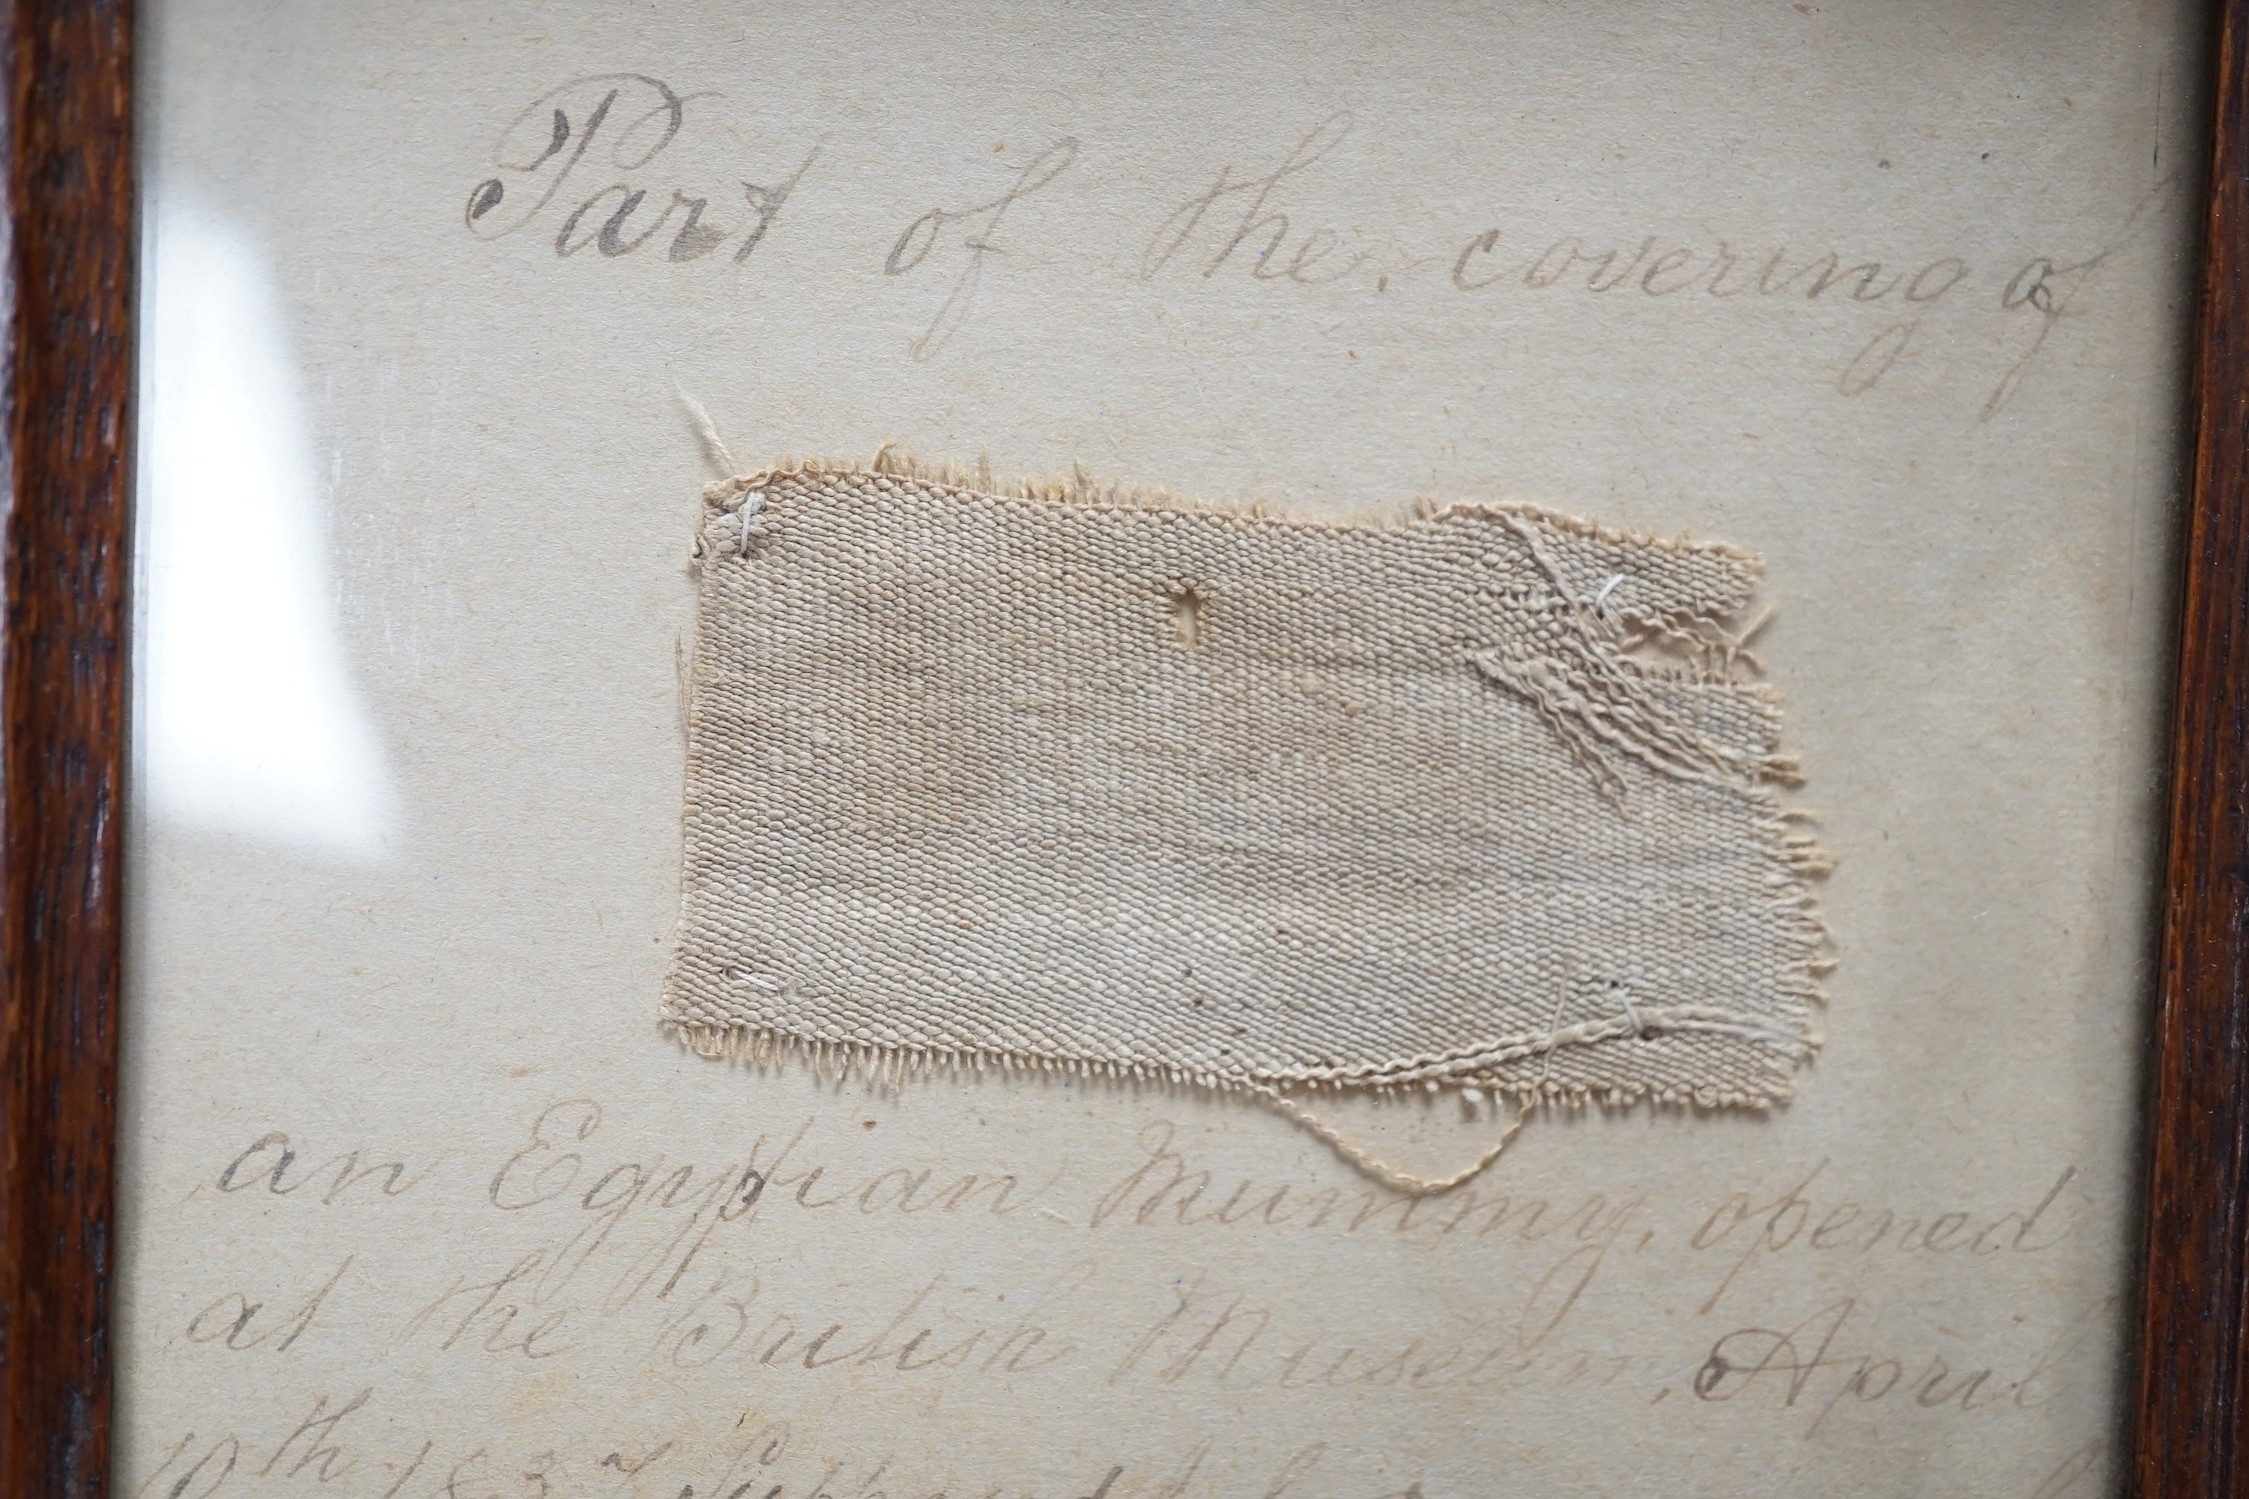 Part of the. covering of
an Egyptian Mummy, opened
at the British Museum, April
10th 1837 Supposed